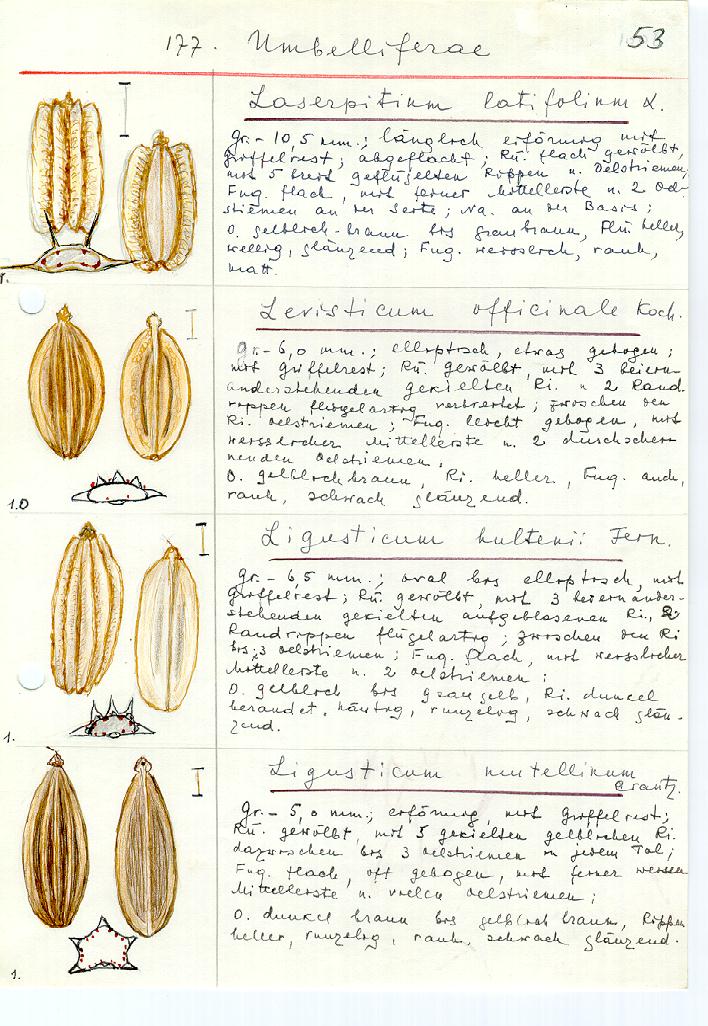 177. Umbelliferae 53
Laserpitium latifolium L.
gr. - 10,5 mm.; länglich eiförmig mit
Griffelrest; abgeflacht; Rü. flach gewölbt,
mit 5 breit geflügelten Rippen u. Oelstriemen,
Fug. flach, mit feiner Mittelleiste u. 2 Oel-
striemen an der Seite; Na. an der Basis;
O. gelblich-braun bis graubraun, Flü heller,
wellig, glänzend; Fug. weisslich, rauh,
matt.
1.
Levisticum officinale Koch.
gr. - 6,0 mm.; elliptisch, etwas gebogen;
mit Griffelrest; Rü. gewölbt, mit 3 beiein-
anderstehenden gekielten Ri. u. 2 Rand
rippen flügelartig verbreitet; zwischen den
Ri. Oelstriemen; Fug. leicht gebogen, mit
weisslicher Mittelleiste u. 2 durchschei-
nenden Oelstriemen,
O. gelblichbraun, Ri. heller, Fug. auch,
rauh, schwach glänzend.
1.0
Ligusticum hultenii Fern.
gr. - 6,5 mm.; oval bis elliptisch, mit
Griffelrest; Rü. gewölbt, mit 3 beieinander-
stehenden gekielten aufgeblasenen Ri., 2
Randrippen flügelartig; zwischen den Ri
bis 3 Oelstriemen; Fug. flach, mit weisslicher
Mittelleiste u. 2 Oelstriemen;
O. gelblich bis graugelb, Ri. dunkel
berandet, häutig, runzelig, schwach glän-
zend.
1.
Ligusticum mutellinum
Crantz.
gr. - 5,0 mm.; eiförmig, mit Griffelrest;
Rü. gewölbt, mit 5 gekielten gelblichen Ri.
dazwischen bis 3 Oelstriemen in jedem Tal;
Fug. flach, oft gebogen, mit feiner weissen
Mittelleiste u. vielen Oelstriemen;
O. dunkel braun bis gelblich braun, Rippen
heller, runzelig, rauh, schwach glänzend.
1.